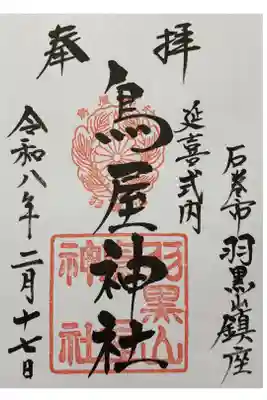 奉拝
石巻市羽黒山鎮座
延喜式内
鳥屋神社
羽黒山
神社
令和八年二月十七日